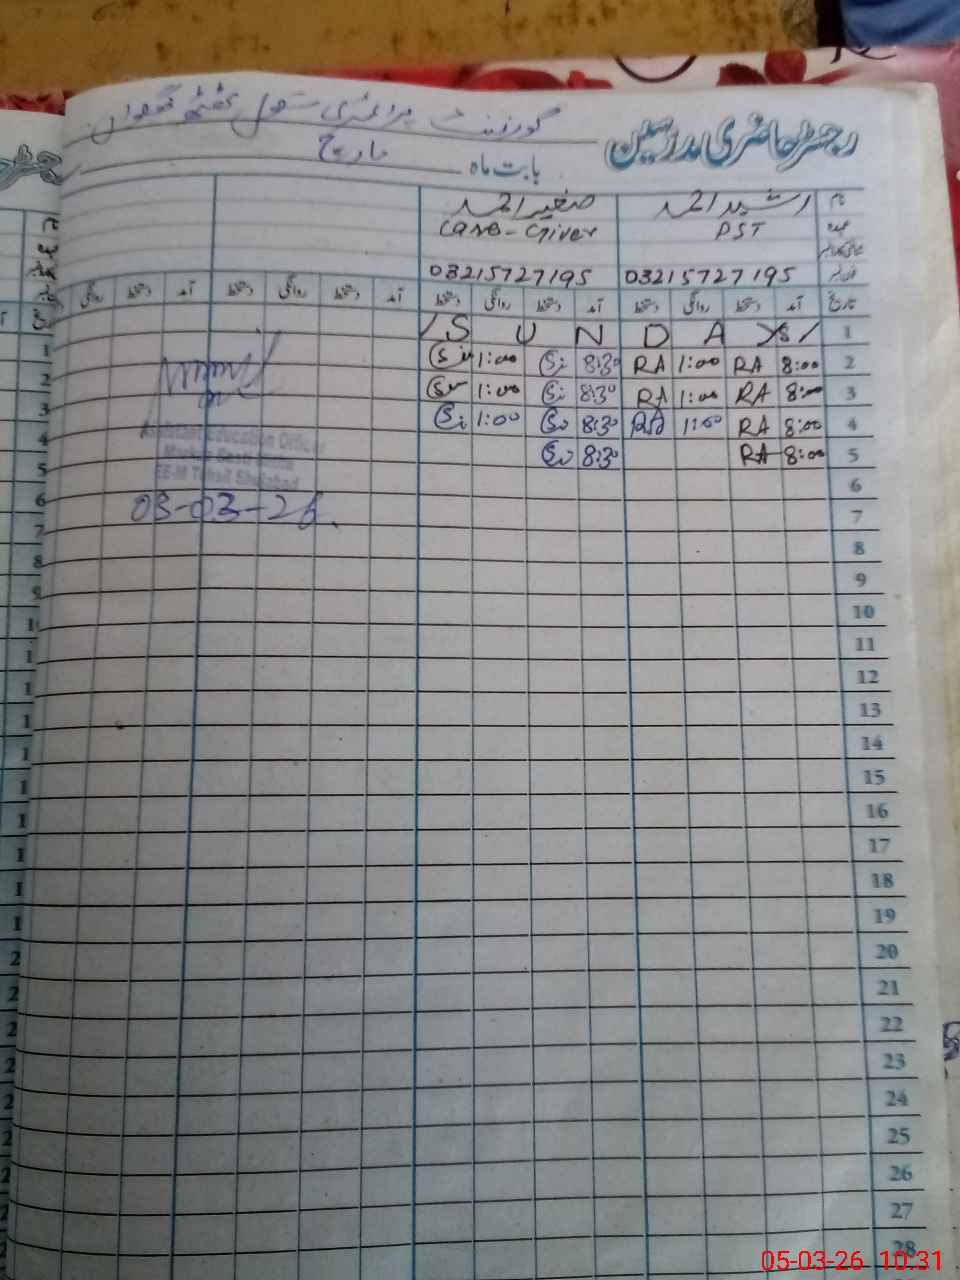 گورنمنٹ پرائمری سکول
رجسٹر حاضری مدرسین
بابت ماہ مارچ
نام رشید احمد صغیر احمد
عہدہ PST Care-Giver
03215727195 03215727195
تاریخ آمد دستخط روانگی دستخط آمد دستخط روانگی دستخط آمد دستخط روانگی دستخط آمد دستخط روانگی
/ S U N D A Y / 1
1:00 8:30 RA 1:00 RA 8:00 2
1:00 8:30 RA 1:00 RA 8:00 3
1:00 8:30 RA 1:00 RA 8:00 4
8:30 RA 8:00 5
Assistant Education Officer
Markaz
EE-M Tehsil Shujabad
6
03-03-26
7
8
9
10
11
12
13
14
15
16
17
18
19
20
21
22
23
24
25
26
27
28
05-03-26 10:31